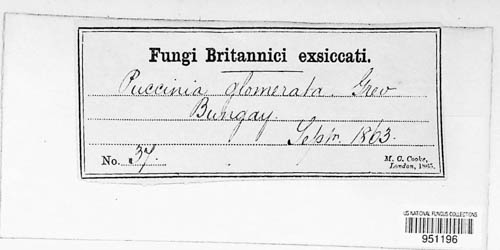 Fungi Britannici exsiccati.
Puccinia glomerata. Grev
Bungay.
Septr. 1863.
No. 37.
M. C. Cooke,
London, 1865.
US NATIONAL FUNGUS COLLECTIONS
951196